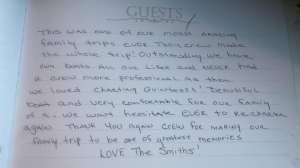 GUESTS
THIS WAS ONE OF OUR MOST AMAZING
FAMILY TRIPS EVER THEY CREW MADE
THE WHOLE TRIP! OUTSTANDING WE HAVE
OUR BOATS ALL OUR LIVES AND NEVER HAD
A CREW MORE PROFESSIONAL AS THEM
WE LOVED CHARTING QUINTESSA! BEAUTIFUL
BOAT AND VERY COMFORTABLE FOR OUR FAMILY
OF WE WON'T HESITATE EVER TO RE-CHARTER
AGAIN THANK YOU AGAIN CREW FOR MAKING OUR
FAMILY TRIP TO BE OF GREATEST MEMORIES
LOVE THE SMITHS!